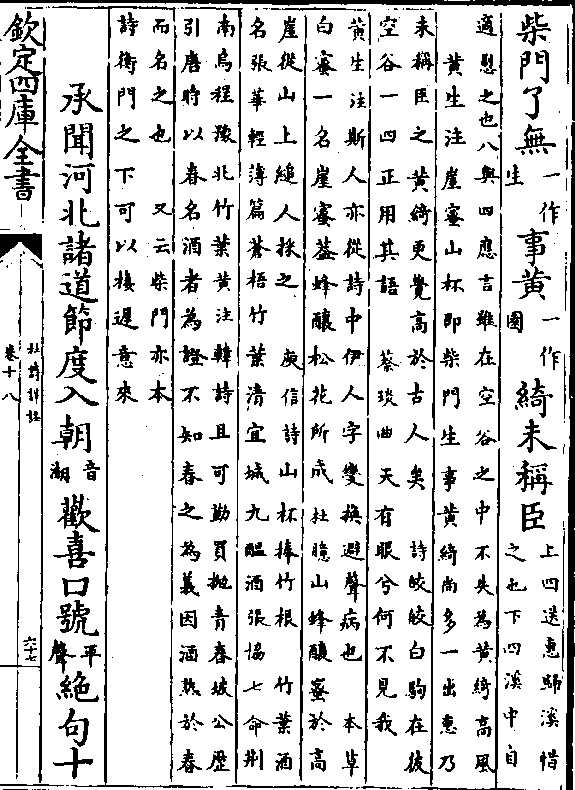 柴門了無一作生事黃一作園綺未稱臣上四送惠歸溪惜之也下四溪中自
適慰之也八與四應言雖在空谷之中不失為黃綺高風
黃生注崖蜜山杯即柴門生事黃綺尚多一出惠乃
未稱臣之黃綺更覺高於古人矣　詩皎皎白駒在彼
空谷一四正用其語　蔡琰曲天有眼兮何不見我
黃生注斯人亦從詩中伊人字變換避聲病也　本草
白蜜一名崖蜜葢蜂釀松花所成杜臆山蜂釀蜜於高
崖從山上縋人採之　庾信詩山杯捧竹根　竹葉酒
名張華輕薄篇蒼梧竹葉清宜城九醖酒張協七命荆
南烏程豫北竹葉黃注韓詩且可勤買抛青春坡公歴
引唐時以春名酒者為證不知春之為義因酒熟於春
而名之也　又云柴門亦本
詩衡門之下可以棲遲意來
承聞河北諸道節度入朝音潮歡喜口號平聲絶句十
欽定四庫全書
杜詩詳註
卷十八
六十七